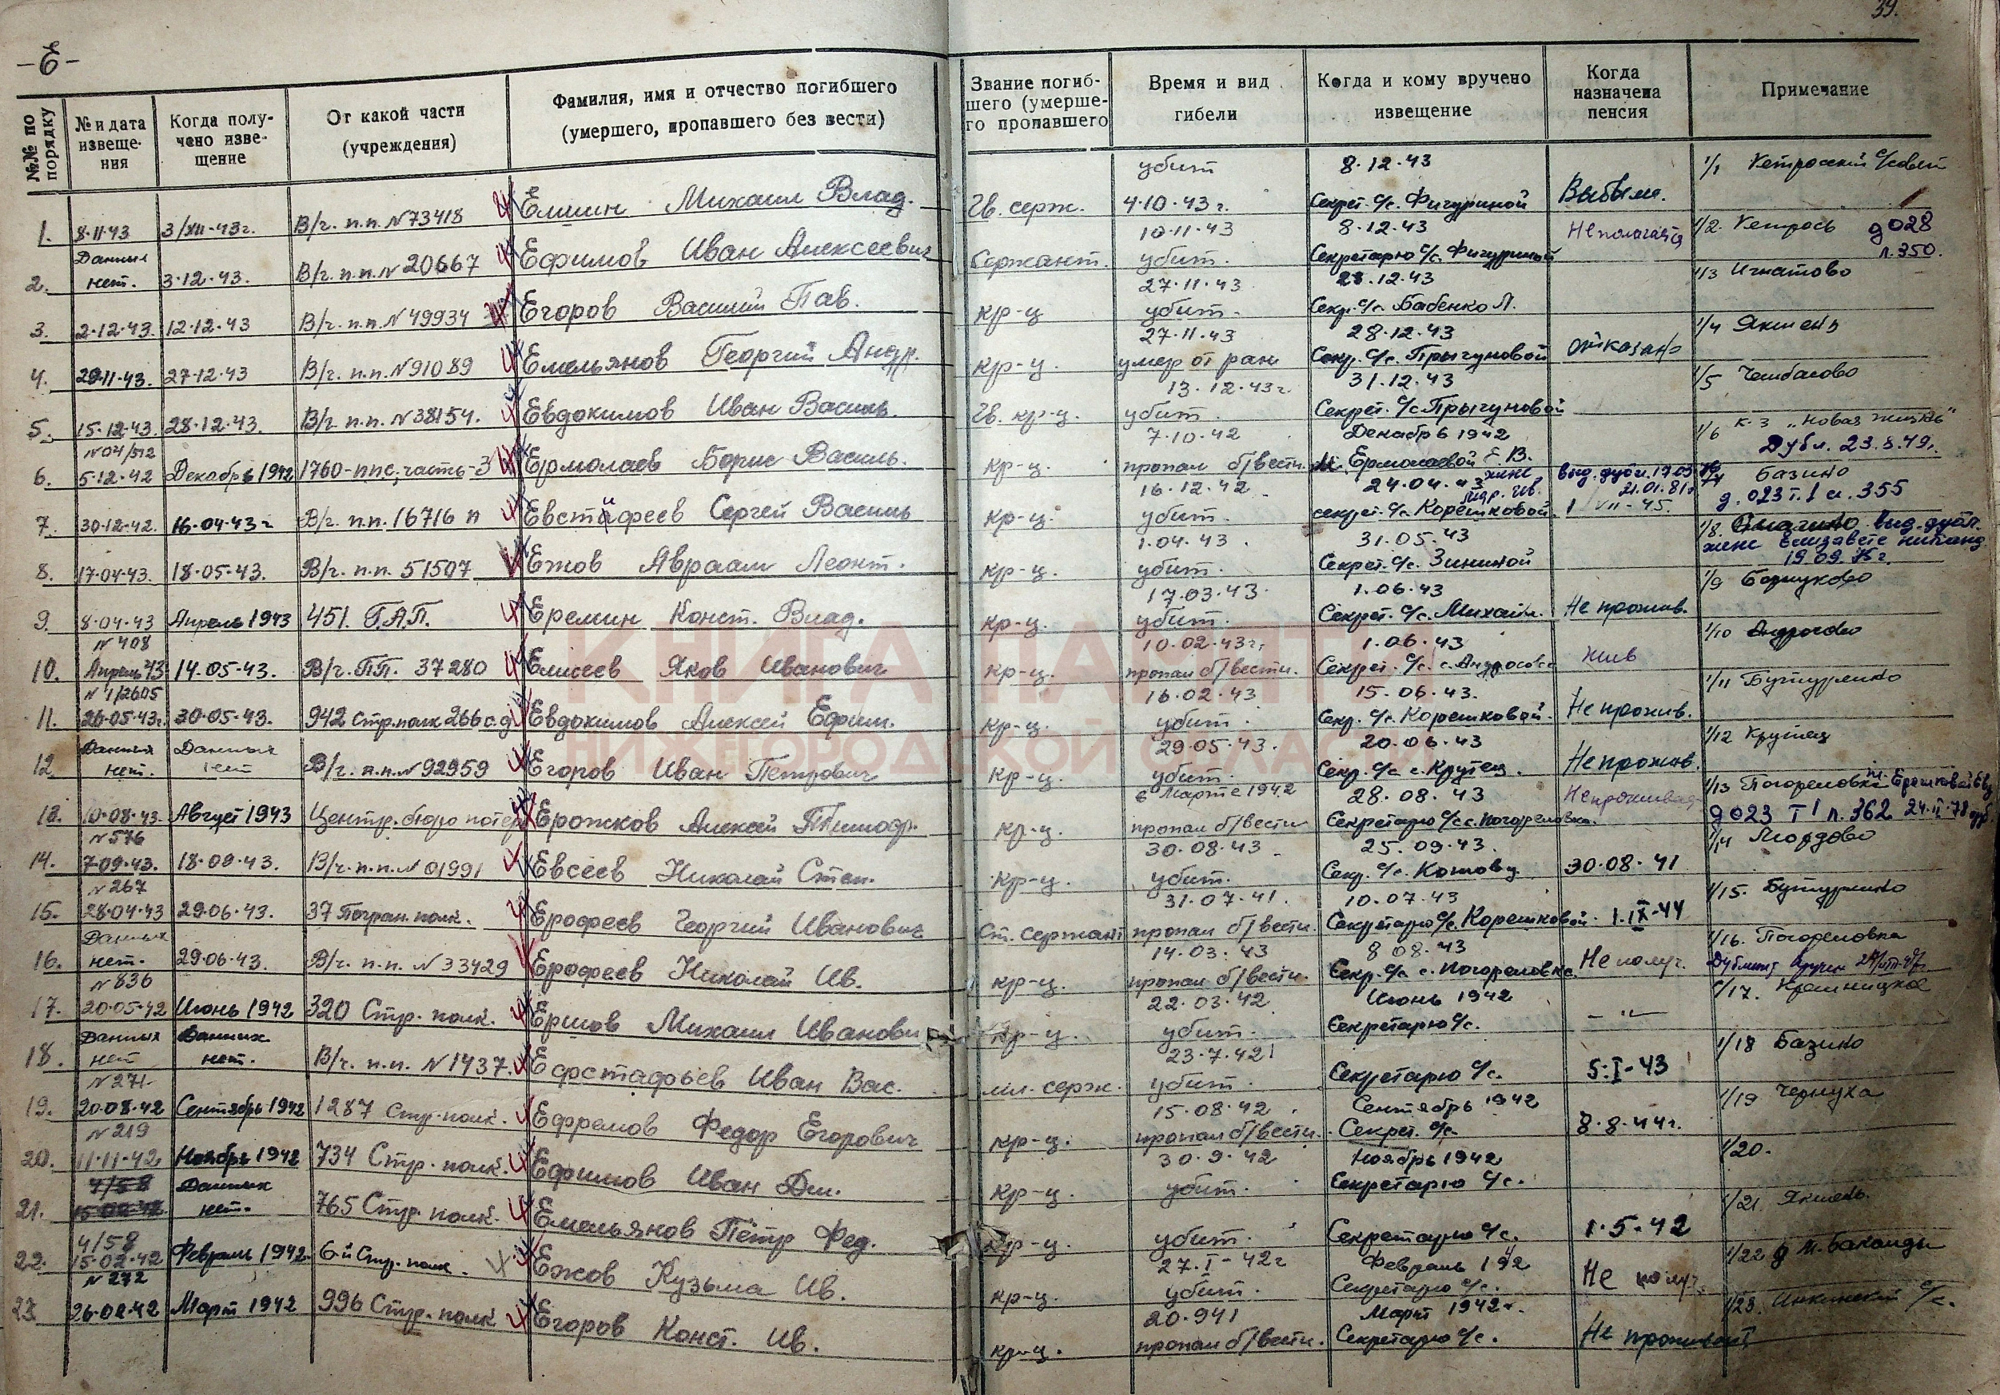 -Е-
39.
№№ по порядку
№ и дата извеще-ния
Когда полу-чено изве-щение
От какой части (учреждения)
Фамилия, имя и отчество погибшего (умершего, пропавшего без вести)
Звание погиб-шего (умерше-го пропавшего
Время и вид гибели
Когда и кому вручено извещение
Когда назначена пенсия
Примечание
1. 8·11·43 3/XII-43г. В/ч. п.п. №73418 Елшин Михаил Влад. Гв. серж. убит 4·10·43г. 8·12·43 Секрет. с/с. Фигуриной Выбыла. 1/1
2. Данных нет. 3·12·43. В/ч. п.п. № 20667 Ефимов Иван Алексеевич Сержант. 10·11·43 убит. 8·12·43 Секретарю с/с. Фигуриной Не полагается 1/2. д028 л.350.
3. 2·12·43. 12·12·43 В/ч. п.п. №49934 Егоров Василий Пав. кр-ц 27·11·43 убит. 28·12·43 Секр. с/с. Бабенко Л. 1/3 Игнатово
4. 29·11·43. 27·12·43 В/ч. п.п. №91089 Емельянов Георгий Андр. кр-ц. 27·11·43 умер от ран 28·12·43 Секр. с/с. Прыгуновой отказано 1/4 Якшень
5. 15·12·43. 28·12·43. В/ч. п.п. №38154. Евдокимов Иван Василь. Гв. кр-ц. 13.12.43г убит. 31.12.43 Секрет. с/с Прыгуновой 1/5
6. №04/512 5·12·42 Декабрь 1942 1760-ппс, часть-3 Ермолаев Борис Василь. кр-ц. 7·10·42 пропал б/вести. Декабрь 1942 Ермолаевой Е.В. жене 1/6 к-з „Новая жизнь" Дубл. 23.8.49г.
7. 30·12·42. 16·04·43г В/ч. п.п. 16716 п Евстифеев Сергей Василь кр-ц. 16·12·42 убит. 24·04·43 секрет. с/с. Корешковой Базино д. 023 т.1 л. 355
8. 17·04·43. 18·05·43. В/ч. п.п. 51507 Ежов Авраам Леонт. кр-ц. 1·04·43 убит. 31·05·43 Секрет. с/с. Зининой 1/8. выд. дубл. жене Елизавете 19.09.75г.
9. 8·04·43 Апрель 1943 451 Г.А.П. Еремин Конст. Влад. кр-ц. 17·03·43. убит. 1·06·43 Секрет. с/с. Михайл. Не прожив. 1/9 Борнуково
10. №408 Апрель 43 14·05·43. В/ч. П.П. 37280 Елисеев Яков Иванович кр-ц. 10·02·43г. пропал б/вести. 1.06·43 Секрет. с/с. с. Андросово жив 1/10 Андросово
11. №1/2605 26·05·43г. 30·05·43. 942 стр. полк 266 с.д. Евдокимов Алексей Ефим. кр-ц. 16·02·43. убит. 15·06·43. Секр. с/с. Корешковой. Не прожив. 1/11 Бутурлино
12 Данных нет. Данных нет В/ч. п.п. № 92959 Егоров Иван Петрович кр-ц. 29·05·43. убит. 20·06·43 Секр. с/с с. Крутец. Не прожив. 1/12 Крутец
13. 10·08·43. Август 1943 Центр. бюро потерь Ерожков Алексей Тимофе. кр-ц. в Марте 1942 пропал б/вести 28·08·43 Секретарю с/с с. Погореловка. Не проживает 1/13 Погореловка д023 Т1 л.362
14. №576 7·09·43. 18·09·43. В/ч. п.п. № 01991 Евсеев Николай Степ. кр-ц. 30·08·43 убит. 25·09·43. Секр. с/с. Котову 30·08·41 1/14 Мордово
15. №267 28·04·43 29·06·43. 37 Погран. полк. Ерофеев Георгий Иванович Ст. сержант 31·07·41. пропал б/вести. 10·07·43 Секретарю с/с. Корешковой. 1·IX-44 1/15. Бутурлино
16. Данных нет. 29·06·43. В/ч. п.п. №33429 Ерофеев Николай Ив. кр-ц. 14·03·43 пропал б/вести. 8 08·43 Секр. с/с с. Погореловка. Не получ. 1/16. Погореловка
17. №836 20·05·42 Июнь 1942 320 Стр. полк. Ершов Михаил Иванови кр-ц. 22·03·42 убит. Июнь 1942 Секретарю с/с. - " -
18. Данных нет Данных нет. В/ч. п.п. №1437. Ефстафьев Иван Вас. мл. серж. 23·7·42 убит. Секретарю с/с. 5·I-43 1/18 Базино
19. №271 20·08·42 Сентябрь 1942 1287 Стр. полк. Ефремов Федор Егорович кр-ц. 15·08·42 пропал б/вести. Сентябрь 1942 Секрет. с/с 8·8·44г. 1/19 Чернуха
20. №219 11·11·42 Ноябрь 1942 734 Стр. полк. Ефимов Иван Дм. кр-ц. 30·9·42 убит. Ноябрь 1942 Секретарю с/с. 1/20.
21. 4/58 15·02·42 Данных нет. 765 Стр. полк. Емельянов Пётр Фед. кр-ц. убит. Секретарю с/с. 1·5·42 1/21. Якшень.
22. 4/58 15·02·42 Февраль 1942 6й Стр. полк. Ежов Кузьма Ив. кр-ц. 27·I-42г убит. Февраль 1942 Секретарю с/с. Не получ. 1/22 д М. Бакалды
23. №272 26·02·42 Март 1942 996 Стр. полк Егоров Конст. Ив. кр-ц. 20·9 41 пропал б/вести. Март 1942г. Секретарю с/с. Не проживает 1/23. с/с.
КНИГА ПАМЯТИ
НИЖЕГОРОДСКОЙ ОБЛАСТИ